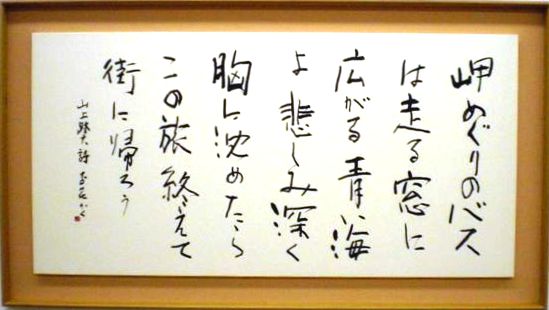 岬めぐりのバス
は走る窓に
広がる青い海
よ悲しみ深く
胸に沈めたら
この旅終えて
街に帰ろう
山上路夫詩